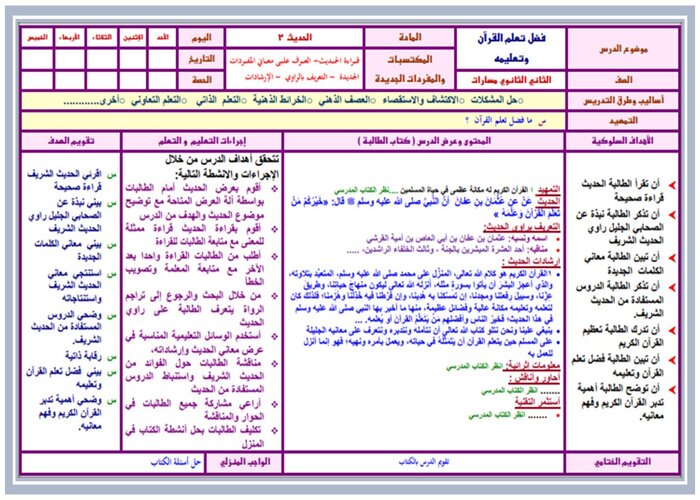 موضوع الدرس
فضل تعلم القرآن
وتعليمه
المادة
الحديث ٢
اليوم
الأحد
الإثنين
الثلاثاء
الأربعاء
الخميس
الصف
الثاني الثانوي مسارات
المكتسبات
والمفردات الجديدة
قراءة الحديث – التعرف على معاني المفردات
الجديدة – التعريف بالراوي – الإرشادات
التاريخ
الحصة
أساليب وطرق التدريس
○حل المشكلات ○الاكتشاف والاستقصاء ○العصف الذهني ○الخرائط الذهنية ○التعلم الذاتي ○التعلم التعاوني ○أخرى............
التمهيد
س ما فضل تعلم القرآن ؟
الأهداف السلوكية
المحتوى وعرض الدرس ( كتاب الطالبة )
إجراءات التعليم و التعلم
تقويم الهدف
أن تقرأ الطالبة الحديث
قراءة صحيحة
أن تذكر الطالبة نبذة عن
الصحابي الجليل راوي
الحديث الشريف
أن تبين الطالبة معاني
الكلمات الجديدة
أن تذكر الطالبة الدروس
المستفادة من الحديث
الشريف.
أن تدرك الطالبة تعظيم
القرآن الكريم
أن تبين الطالبة فضل تعلم
القرآن وتعليمه
أن توضح الطالبة أهمية
تدبر القرآن الكريم وفهم
معانيه.
التمهيد ؛ القرآن الكريم له مكانة عظمى في حياة المسلمين ....نظر الكتاب المدرسي
الحديث عَنْ عَنْ عُثْمَانَ بْنِ عفانَ أنَّ النَّبِيَّ صلى الله عليه وسلم ﷺ قال: «خَيْرُكُمْ مَنْ
تَعَلَّمَ القُرْآنَ وَعَلَّمَهُ »
التعريف براوي الحديث:
اسمه ونسبه: عثمان بن عفان بن أبي العاص بن أمية القرشي
مناقبه: أحد العشرة المبشرين بالجنة ، وثالث الخلفاء الراشدين.....
إرشادات الحديث :
القرآن الكريم هو كلام الله تعالى، المنزَّل على محمد صلى الله عليه وسلم، المتعبَّد بتلاوته،
والذي أعجز البشر أن يأتوا بسورةٍ مثله، أنزله الله تعالى ليكون منهاج حياتنا، وطريق
عزِّنا، وسبيل رفعتنا ومجدنا، إن تمسكنا به هدينا، وإن فرَّطنا فيه خُذلنا وهُزمنا؛ فلذلك كان
لتعلمه وتعليمه مكانة عالية وفضائل عظيمة، منها ما أخبر بها النبي صلى الله عليه وسلم
في هذا الحديث؛ فخير الناس وأفضلهم مَنْ يتعلَّم القرآن أو يعلّمه. ...
ينبغي علينا ونحن نتلو كتاب الله تعالى أن نتأمله ونتدبره ونتعرف على معانيه الجليلة
على المسلم حين يتعلم القرآن أن يتمثَّله في حياته، ويعمل بأمره ونهيه؛ فهو إنما أنزل
للعمل به
معلومات إثرائية: انظر الكتاب المدرسي
أحاور وأناقش :
....... نظر الكتاب المدرسي
أستثمر التقنية
....... نظر الكتاب المدرسي
تتحقق أهداف الدرس من خلال
الإجراءات والأنشطة التالية:
أقوم بعرض الحديث أمام الطالبات
بواسطة آلة العرض المتاحة مع توضيح
موضوع الحديث والهدف من الدرس
أقوم بقراءة الحديث قراءة ممثلة
للمعنى مع متابعة الطالبات للقراءة
أطلب من الطالبات القراءة واحدا بعد
الآخر مع متابعة المعلمة وتصويب
الخطأ
من خلال البحث والرجوع إلى تراجم
الرواة يتعرف الطالبة على راوي
الحديث
أستخدم الوسائل التعليمية المناسبة في
عرض معاني الحديث وإرشاداته،
مناقشة الطالبات حول الفوائد من
الحديث الشريف واستنباط الدروس
المستفادة من الحديث
أراعي مشاركة جميع الطالبات في
الحوار والمناقشة
تكليف الطالبات بحل أنشطة الكتاب في
المنزل
س اقرئي الحديث الشريف
قراءة صحيحة
س بيني نبذة عن
الصحابي الجليل راوي
الحديث الشريف
س بيني معاني الكلمات
الجديدة
س استنتجي معاني
الحديث الشريف
واستنتاجاته
س وضحي الدروس
المستفادة من الحديث
الشريف.
س رقابة ذاتية
س بيني فضل تعلم القرآن
وتعليمه
س وضحي أهمية تدبر
القرآن الكريم وفهم
معانيه.
التقويم الختامي
تقويم الدرس بالكتاب
الواجب المنزلي
حل أسئلة الكتاب